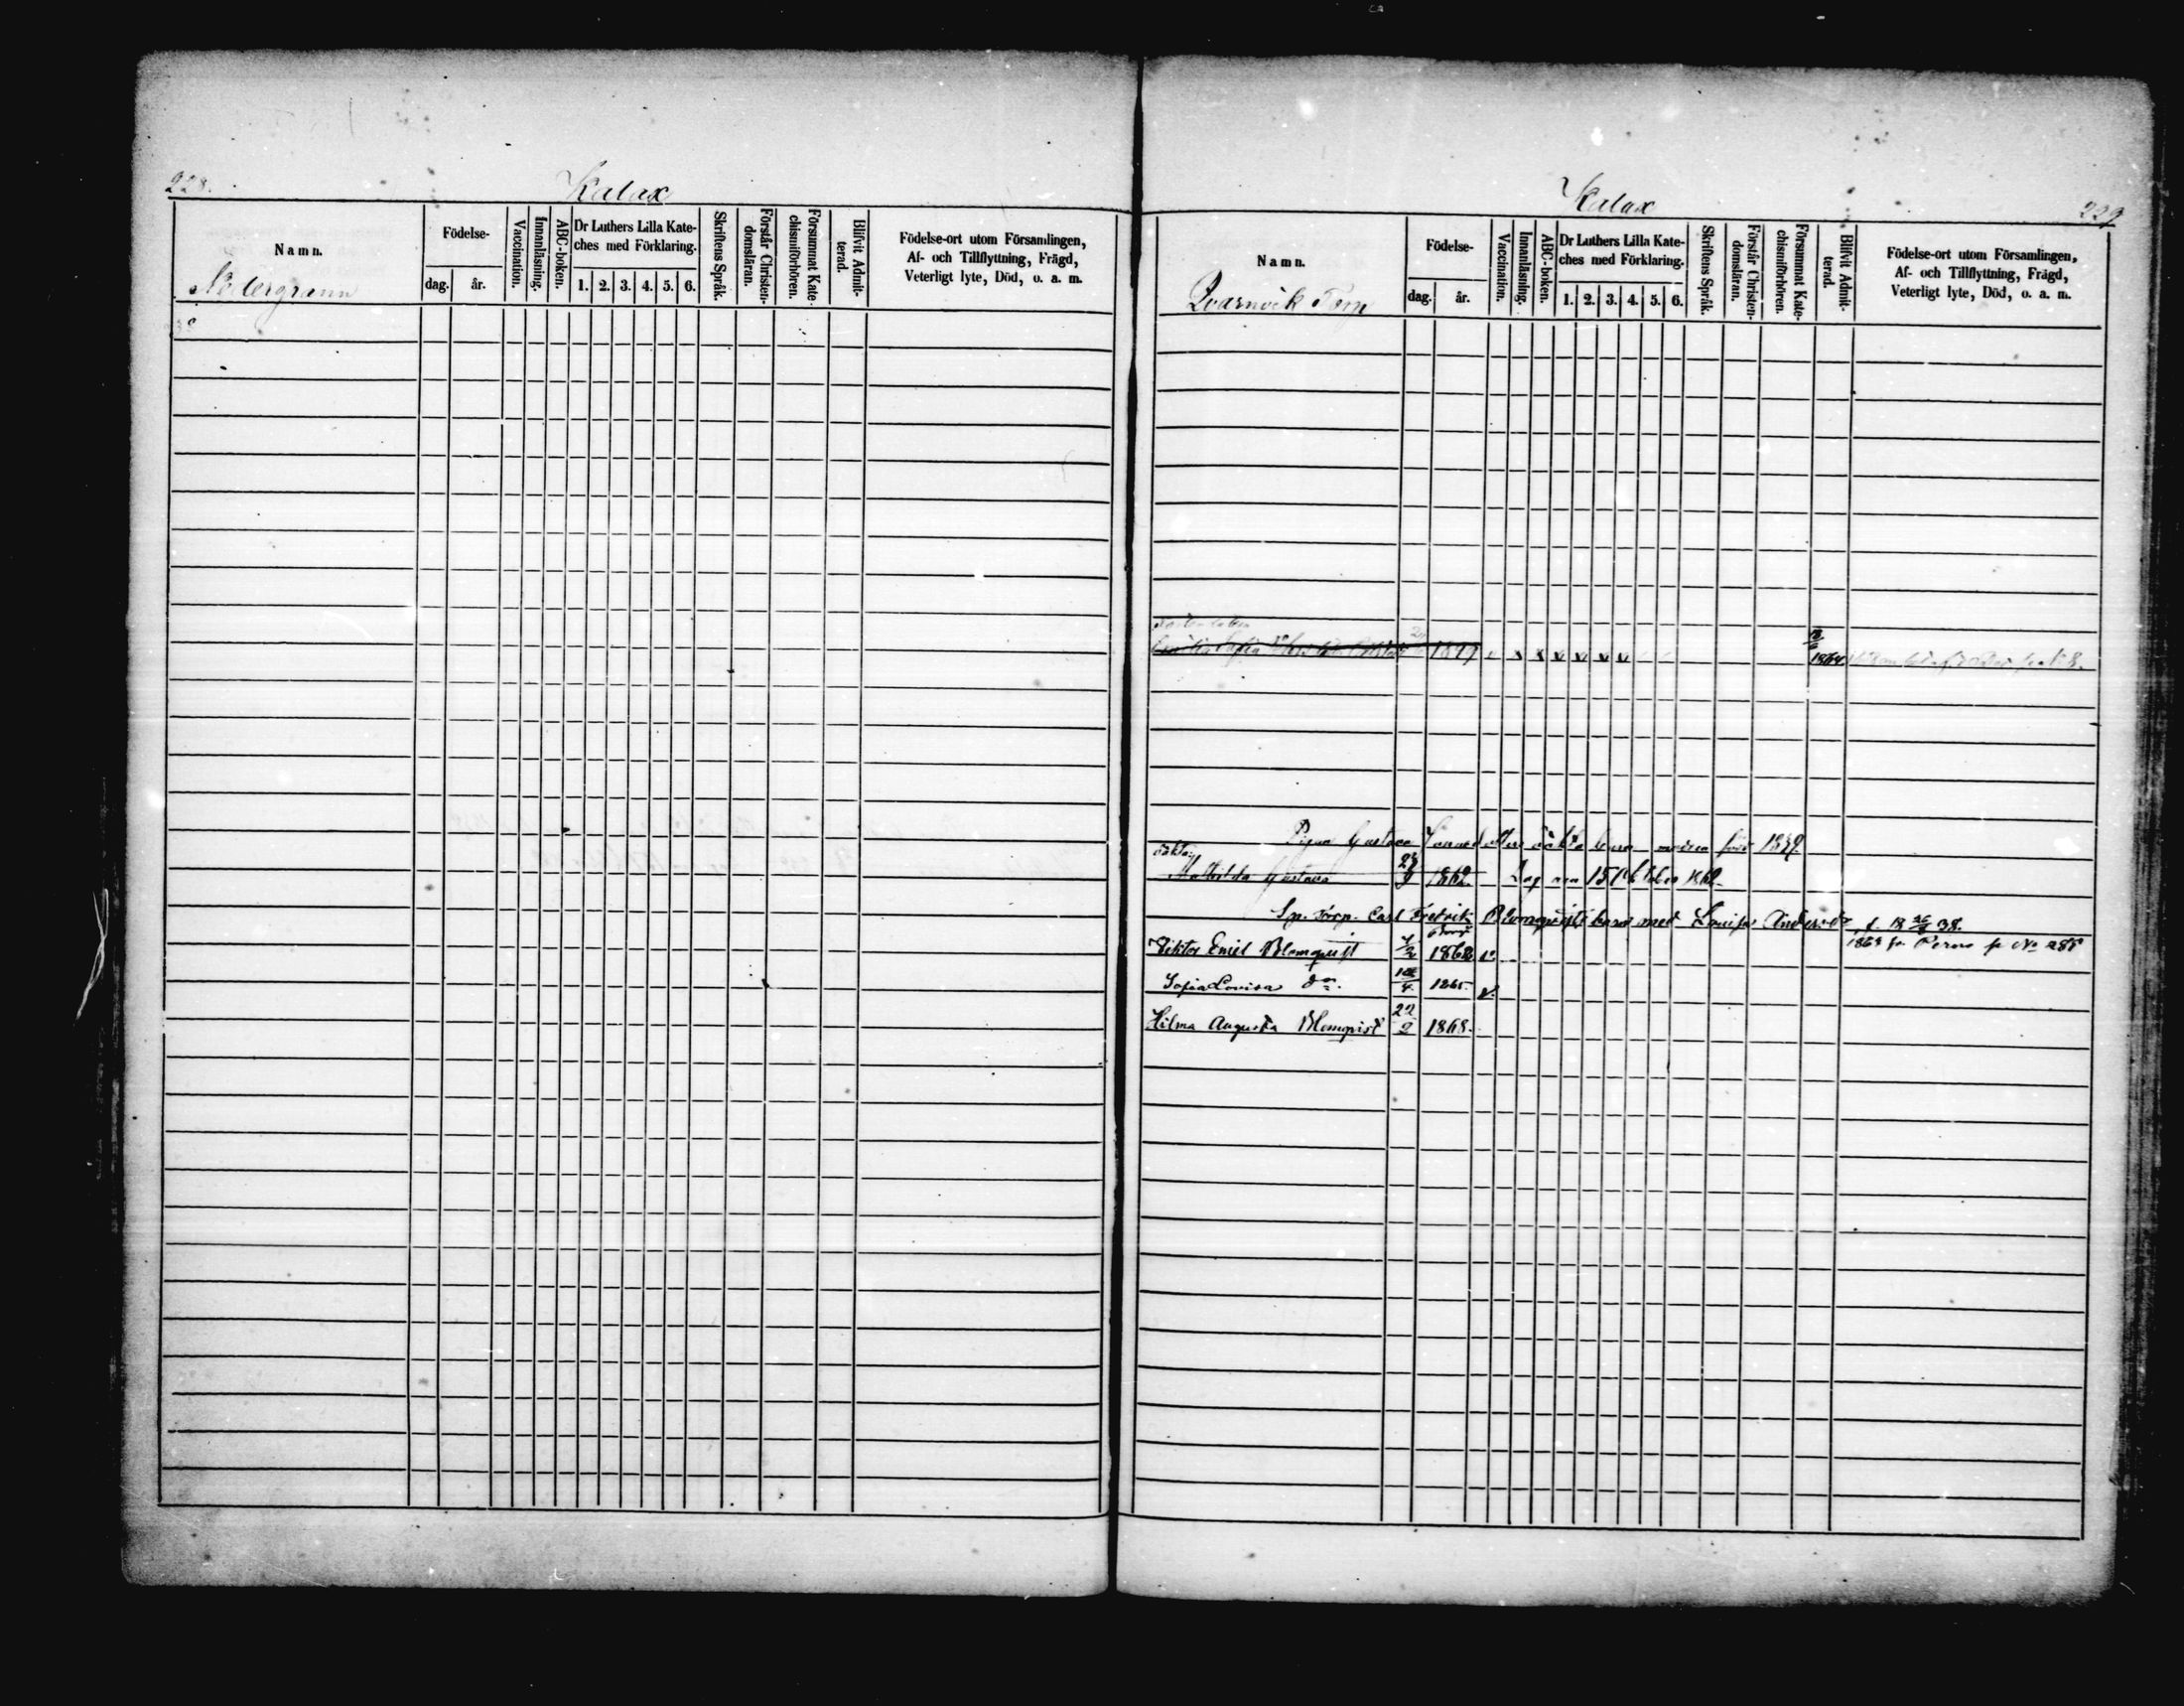 228.
Kalax
Namn.
Nedergrann
Födelse-
dag. år.
Vaccination.
Innanläsning.
ABC-boken.
Dr Luthers Lilla Kate-
ches med Förklaring.
1. 2. 3. 4. 5. 6.
Skriftens Språk.
Förstår Christen-
domsläran.
Försummat Kate-
chismiförhören.
Blifvit Admit-
terad.
Födelse-ort utom Församlingen,
Af- och Tillflyttning, Frägd,
Veterligt lyte, Död, o. a. m.
Kalax
229
Namn.
Qvarnvik Torp
Födelse-
dag. år.
Vaccination.
Innanläsning.
ABC-boken.
Dr Luthers Lilla Kate-
ches med Förklaring.
1. 2. 3. 4. 5. 6.
Skriftens Språk.
Förstår Christen-
domsläran.
Försummat Kate-
chismiförhören.
Blifvit Admit-
terad.
Födelse-ort utom Församlingen,
Af- och Tillflyttning, Frägd,
Veterligt lyte, Död, o. a. m.
Sofia 1847 1864
Pigan Gustava oäkta barn modren född 1839.
oäkta
Mathilda Gustava 1862 Dag den 15 Oktober 1862
Sp. Torp. Carl Fredrik Blomqvists barn med Lovisa Andersdr f. 18 38.
Borgå
Viktor Emil Blomqvist 4/2 1862 v. 1863 fr. Perno p No 285
Sofia Lovisa d:o 1865 v.
Hilma Augusta Blomqvist 22/2 1868.